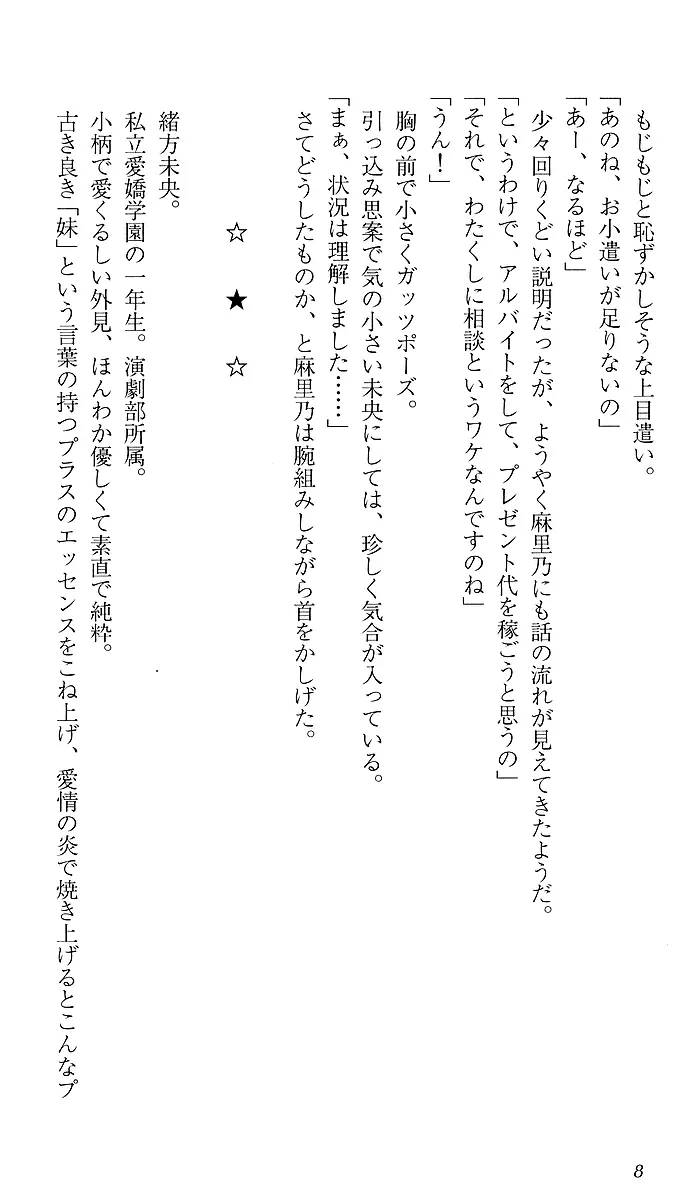 もじもじと恥ずかしそうな上目遣い。
「あのね、お小遣いが足りないの」
「あー、なるほど」
少々回りくどい説明だったが、ようやく麻里乃にも話の流れが見えてきたようだ。
「というわけで、アルバイトをして、プレゼント代を稼ごうと思うの」
「それで、わたくしに相談というワケなんですのね」
「うん！」
胸の前で小さくガッツポーズ。
引っ込み思案で気の小さい未央にしては、珍しく気合が入っている。
「まぁ、状況は理解しました……」
さてどうしたものか、と麻里乃は腕組みしながら首をかしげた。
☆　★　☆
緒方未央。
私立愛嬌学園の一年生。演劇部所属。
小柄で愛くるしい外見、ほんわか優しくて素直で純粋。
古き良き「妹」という言葉の持つプラスのエッセンスをこね上げ、愛情の炎で焼き上げるとこんなプ
8